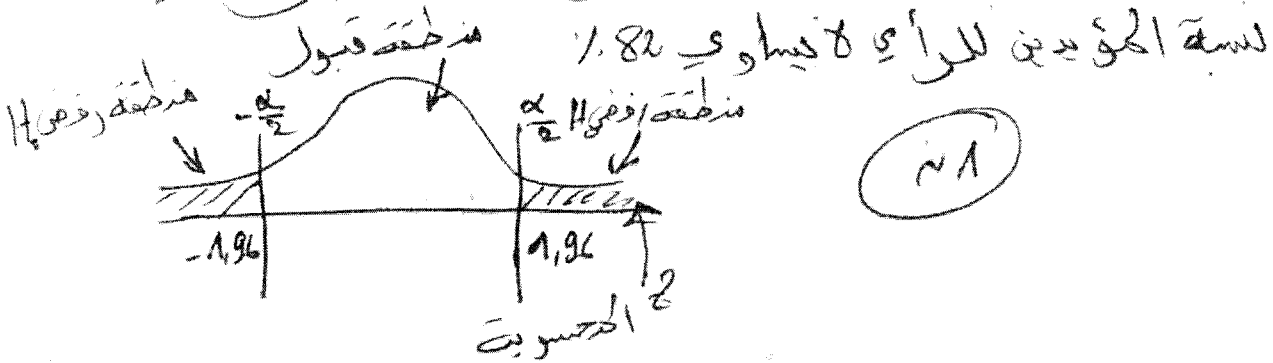 نسبة المؤيدين للرأي لا تساوي 82 %
منطقة قبول
منطقة رفض H₀
-α/2
α/2
منطقة رفض H₀
1ن
-1,96
1,96
Z
المحسوبة